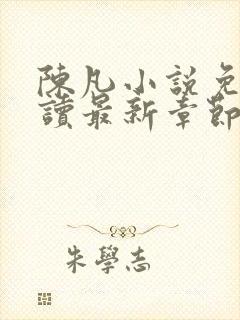 陳凡小說免
讀最新章節
朱學志